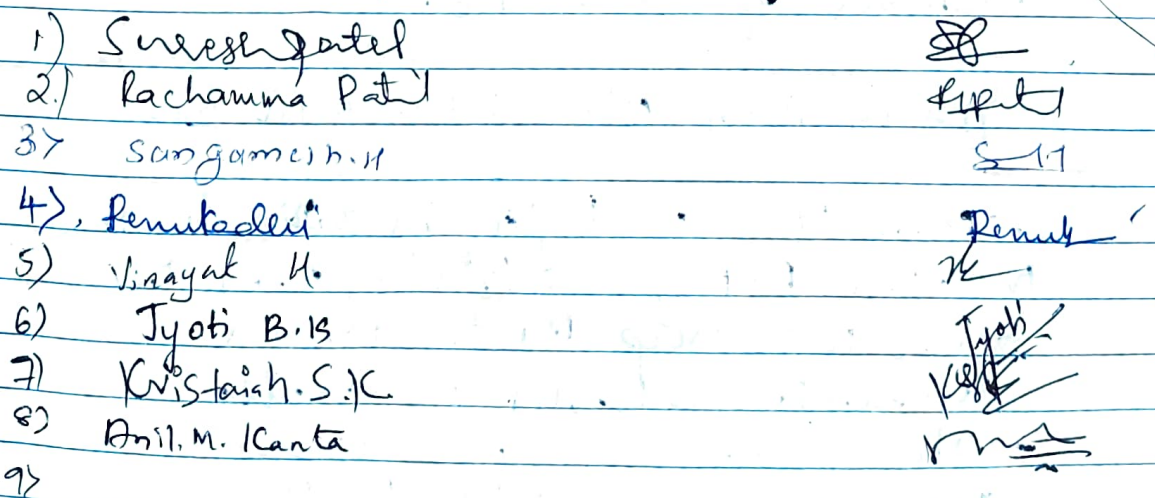 1) Suresh Patel
2.) Rachamma Patil
3> Sangamesh.H
4>, Renukadevi Renuk
5) Vinayak H.
6) Jyoti B.B Jyoti
7) Kristaiah.S.K
8) Anil.M. Kanta
9>